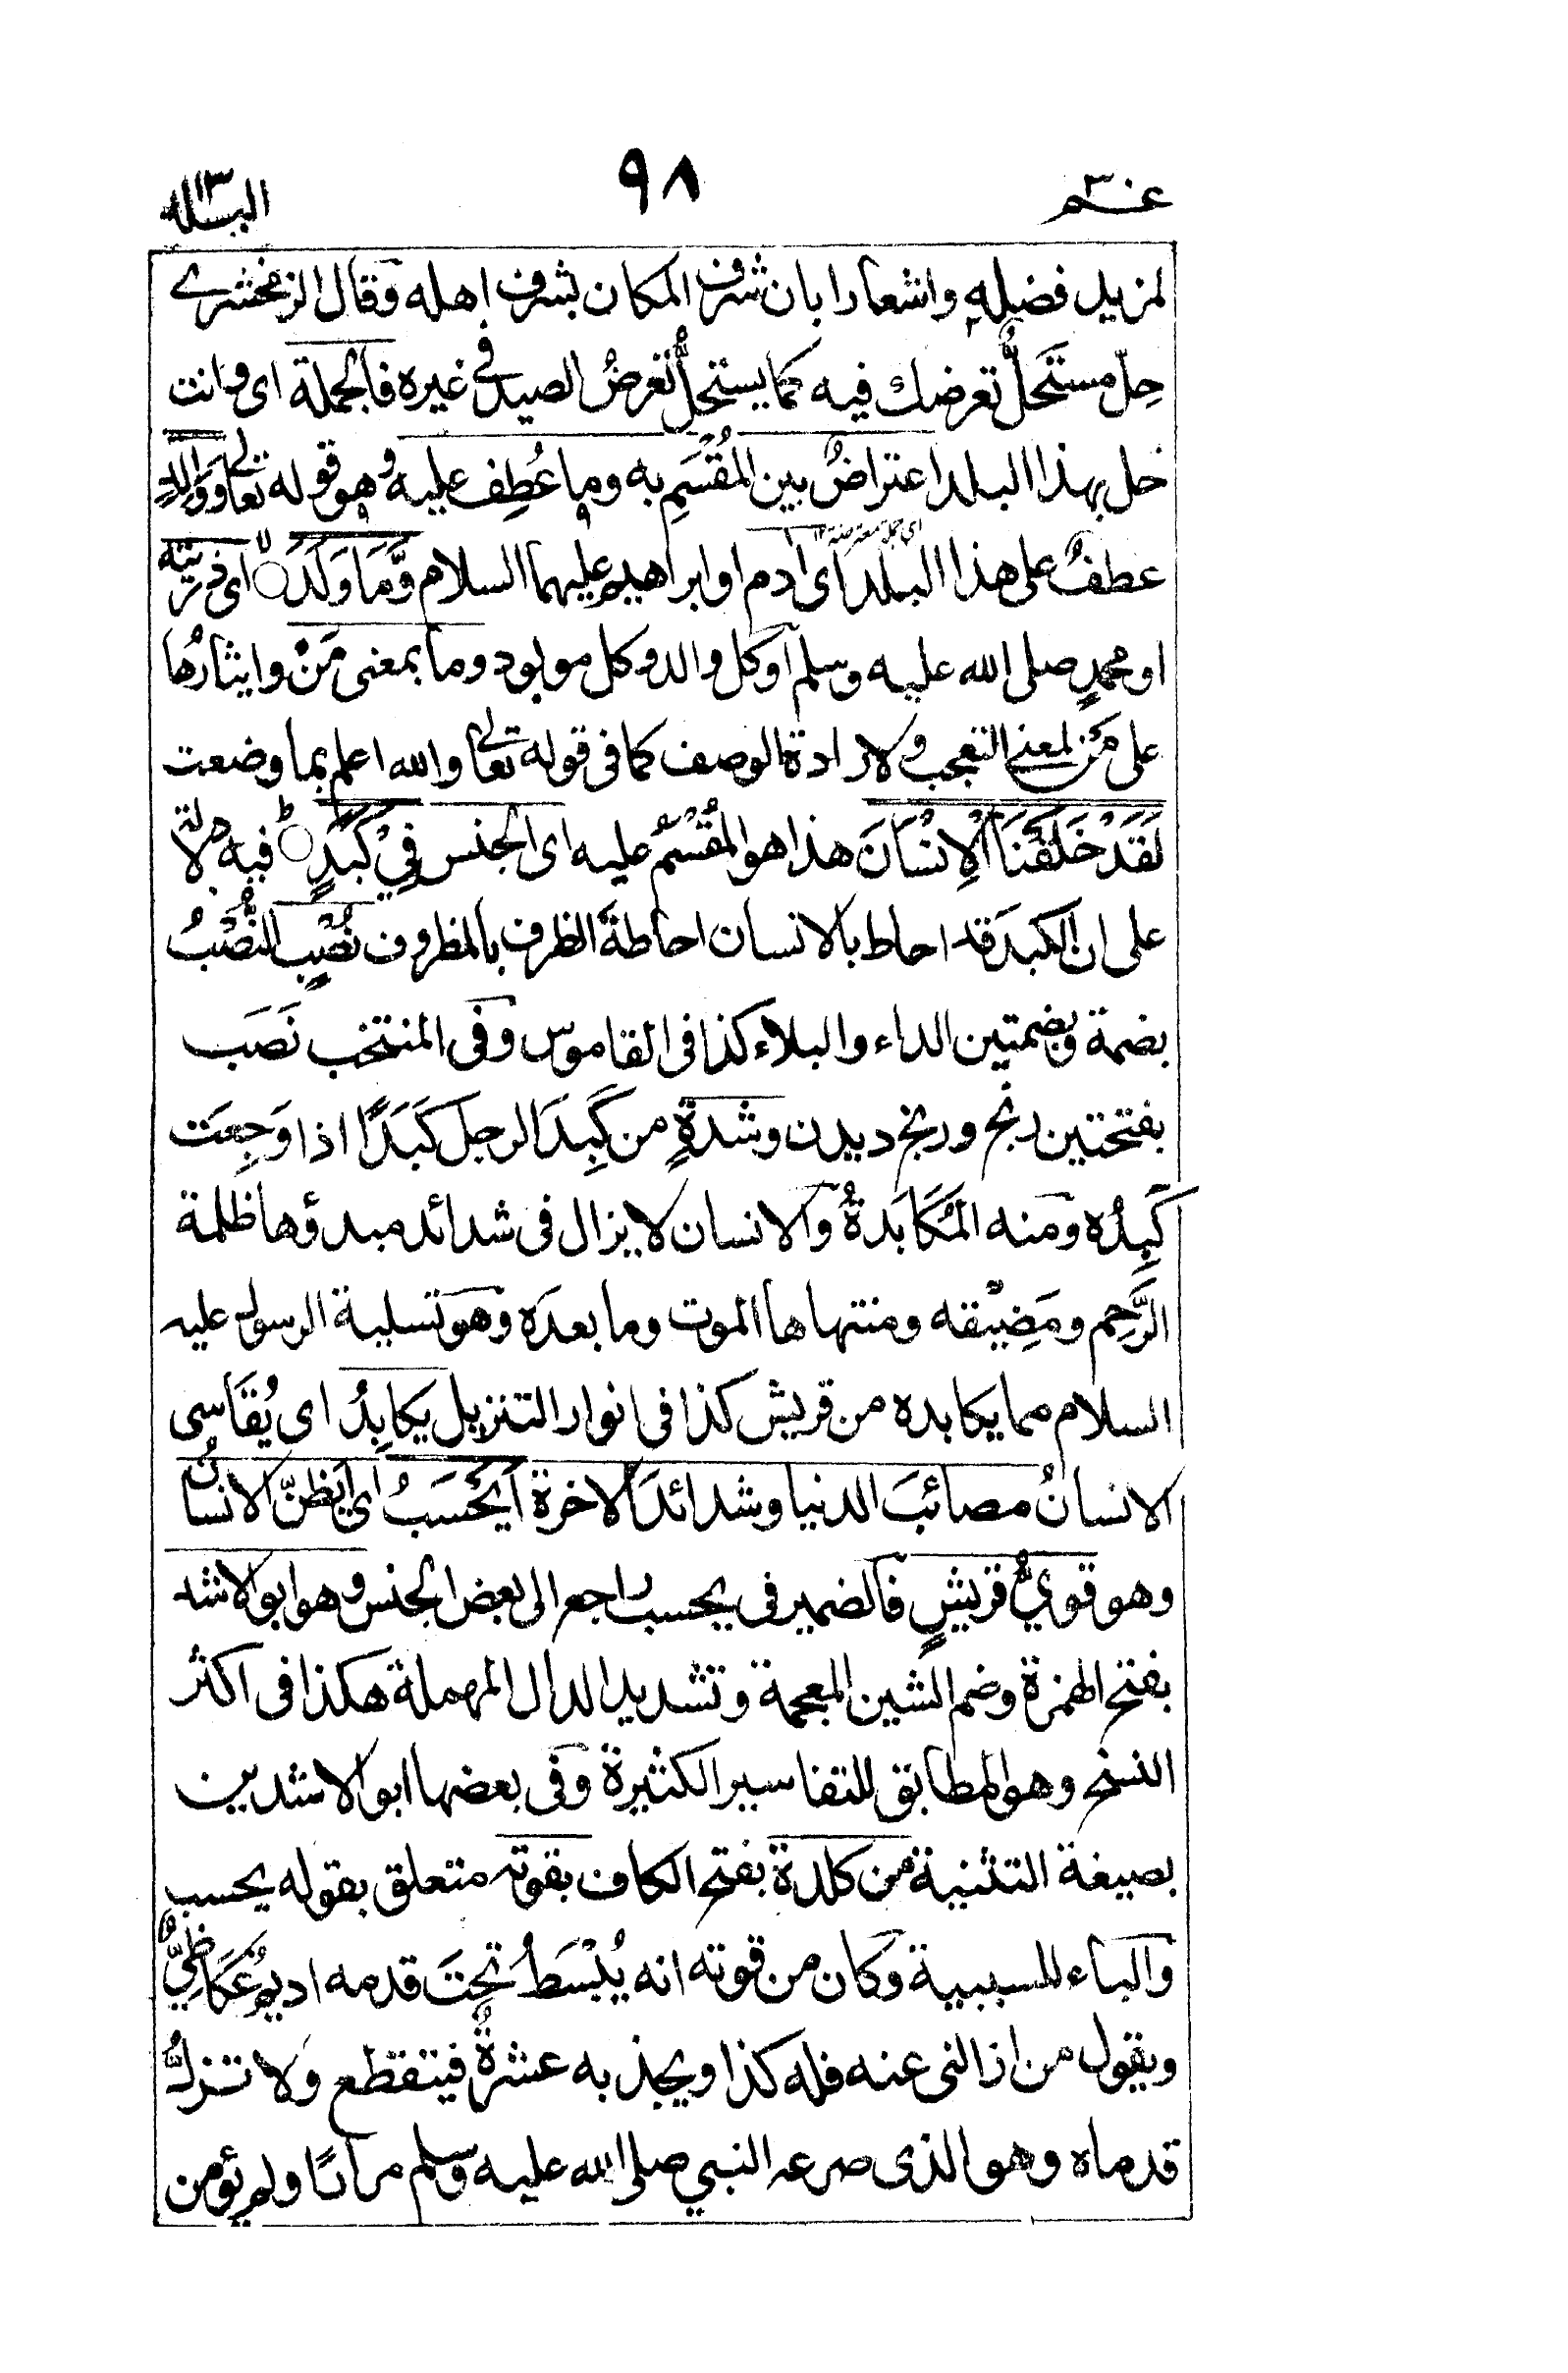 عم ٣٠
٩٨
البلد
لمزيد فضله واشعارا بان شرف المكان بشرف اهله وقال الزمخشرے
حِلّ مستَحَلٌّ تعرضك فيه كما يستحلُّ تعرضُ الصيد فى غيره فالجملة اى وانت
حل بهذا البلد اعتراضٌ بين المُقْسَمِ به وما عُطِف عليه وهو قوله تعالى وَوَالِدٍ
عطفٌ على هذا البلد اى ادم او ابراهيم عليهما السلام وَّمَا وَلَدَ ۙ اى ذريته
او محمدٍ صلى الله عليه وسلم او كل والد وكل مولود وما بمعنى مَنْ وايثارُها
على مَن لمعنى التعجب ولارادة الوصف كما فى قوله تعالى والله اعلم بما وضعت
لَقَدْ خَلَقْنَا الْاِنْسَانَ هذا هو المُقْسَمُ عليه اى الجنس فِيْ كَبَدٍ ؕ فيه دلالة
على ان الكبدَ قد احاط بالانسان احاطةَ الظرف بالمظروف نُصْبٍ النُّصْبُ
بضمة وبضمتين الداء والبلاء كذا فى القاموس وفى المنتخب نَصَب
بفتحتين رنج ورنج ديدن وشدةٍ من كَبِدَ الرجل كَبَدًا اذا وَجِعَت
كَبِدُه ومنه المُكَابَدةُ والانسان لا يزال فى شدائد مبدؤها ظلمة
الرَّحِم ومَضِيْقه ومنتهاها الموت وما بعده وهو تسلية الرسول عليه
السلام مما يكابده من قريش كذا فى انوار التنزيل يكابِدُ اى يُقَاسى
الانسانُ مصائبَ الدنيا وشدائدَ الاخرة اَيَحْسَبُ اى ايَظنّ الانسانُ
وهو قويُّ قريشٍ فالضمير فى يحسب راجع الى بعض الجنس وهو ابو الاشد
بفتح الهمزة وضم الشين المعجمة وتشديد الدال المهملة هكذا فى اكثر
النسخ وهو المطابق للتفاسير الكثيرة وفى بعضها ابو الاشدين
بصيغة التثنية من كلدة بفتح الكاف بقوته متعلق بقوله يحسب
والباء للسببية وكان من قوته انه يُبْسَطُ تحتَ قدمه اديمٌ عُكَاظِيٌّ
ويقول من ازالنى عنه فله كذا ويجذبه عشرةٌ فيتقطع ولا تزلُّ
قدماه وهو الذى صرعه النبي صلى الله عليه وسلم مرارًا ولم يؤمن